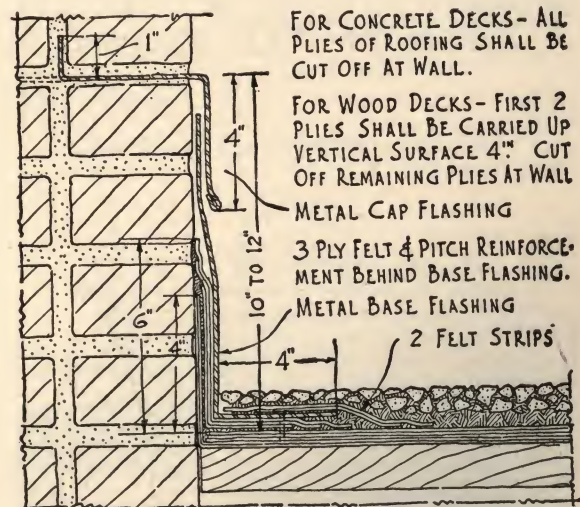 FOR CONCRETE DECKS - ALL
PLIES OF ROOFING SHALL BE
CUT OFF AT WALL.
FOR WOOD DECKS - FIRST 2
PLIES SHALL BE CARRIED UP
VERTICAL SURFACE 4IN. CUT
OFF REMAINING PLIES AT WALL
METAL CAP FLASHING
3 PLY FELT & PITCH REINFORCE-
MENT BEHIND BASE FLASHING.
METAL BASE FLASHING
2 FELT STRIPS
1"
4"
10" TO 12"
6"
4"
4"